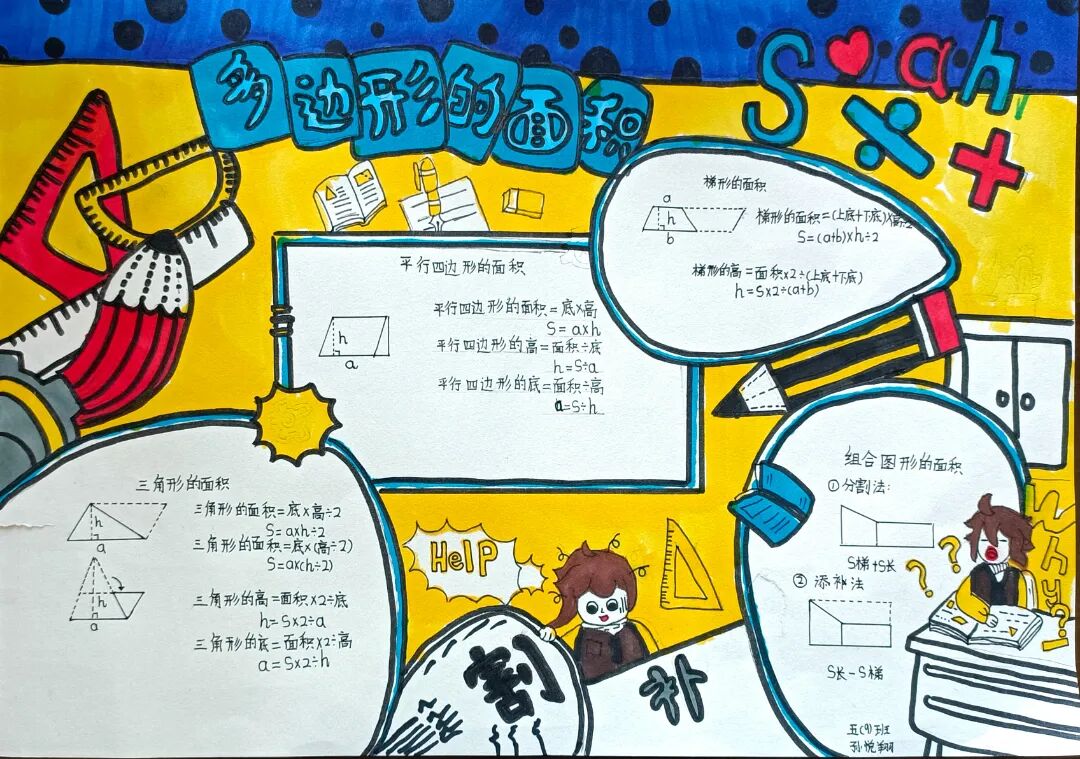 多边形的面积
S ah
÷ +
梯形的面积
a
h
b
梯形的面积=(上底+下底)×高÷2
S=(a+b)×h÷2
梯形的高=面积×2÷(上底+下底)
h=S×2÷(a+b)
平行四边形的面积
h
a
平行四边形的面积=底×高
S=a×h
平行四边形的高=面积÷底
h=S÷a
平行四边形的底=面积÷高
a=S÷h
三角形的面积
h
a
h
a
三角形的面积=底×高÷2
S=a×h÷2
三角形的面积=底×(高÷2)
S=a×(h÷2)
三角形的高=面积×2÷底
h=S×2÷a
三角形的底=面积×2÷高
a=S×2÷h
HelP
割
补
组合图形的面积
①分割法:
S梯+S长
②添补法
S长-S梯
? ?
Why?!
五(9)班
孙悦翔